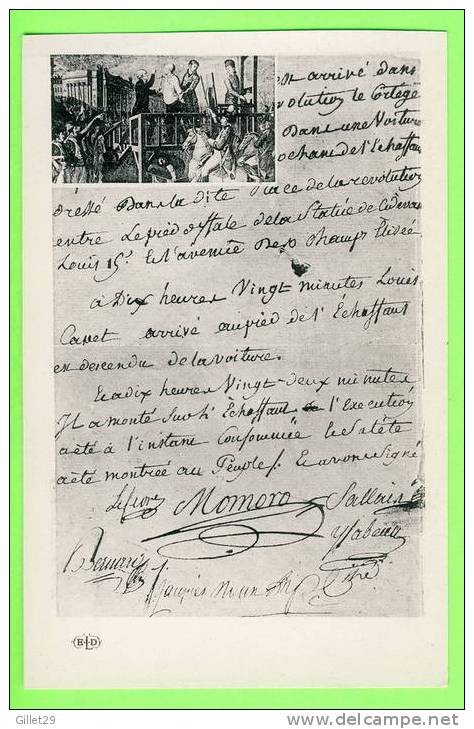 est arrivé dans
volution le Cortege
Dans une Voiture
rochant de l'Echaffaut
dressé Dans la dite Place de la révolution
entre Le pied d'Estale de la Statüe de Cidevant
Louis 15.e Et l'avenüe Des Champs Elisée
à Dix heures Vingt minutes Louis
Capet arrivé au pied de l'Échaffaut
est descendu de la voiture.
Et a dix heures Vingt-deux minutes
Il a monté Sur l'Echaffaut l'Execution
a été à l'instant Consommée et Sa tête
a été montrée au Peuple. Et avons Signé
Lefevre Momoro Sallais
Isabeau
Bernard
Jacques Roux
ELD
Gillet29 delcampe.net